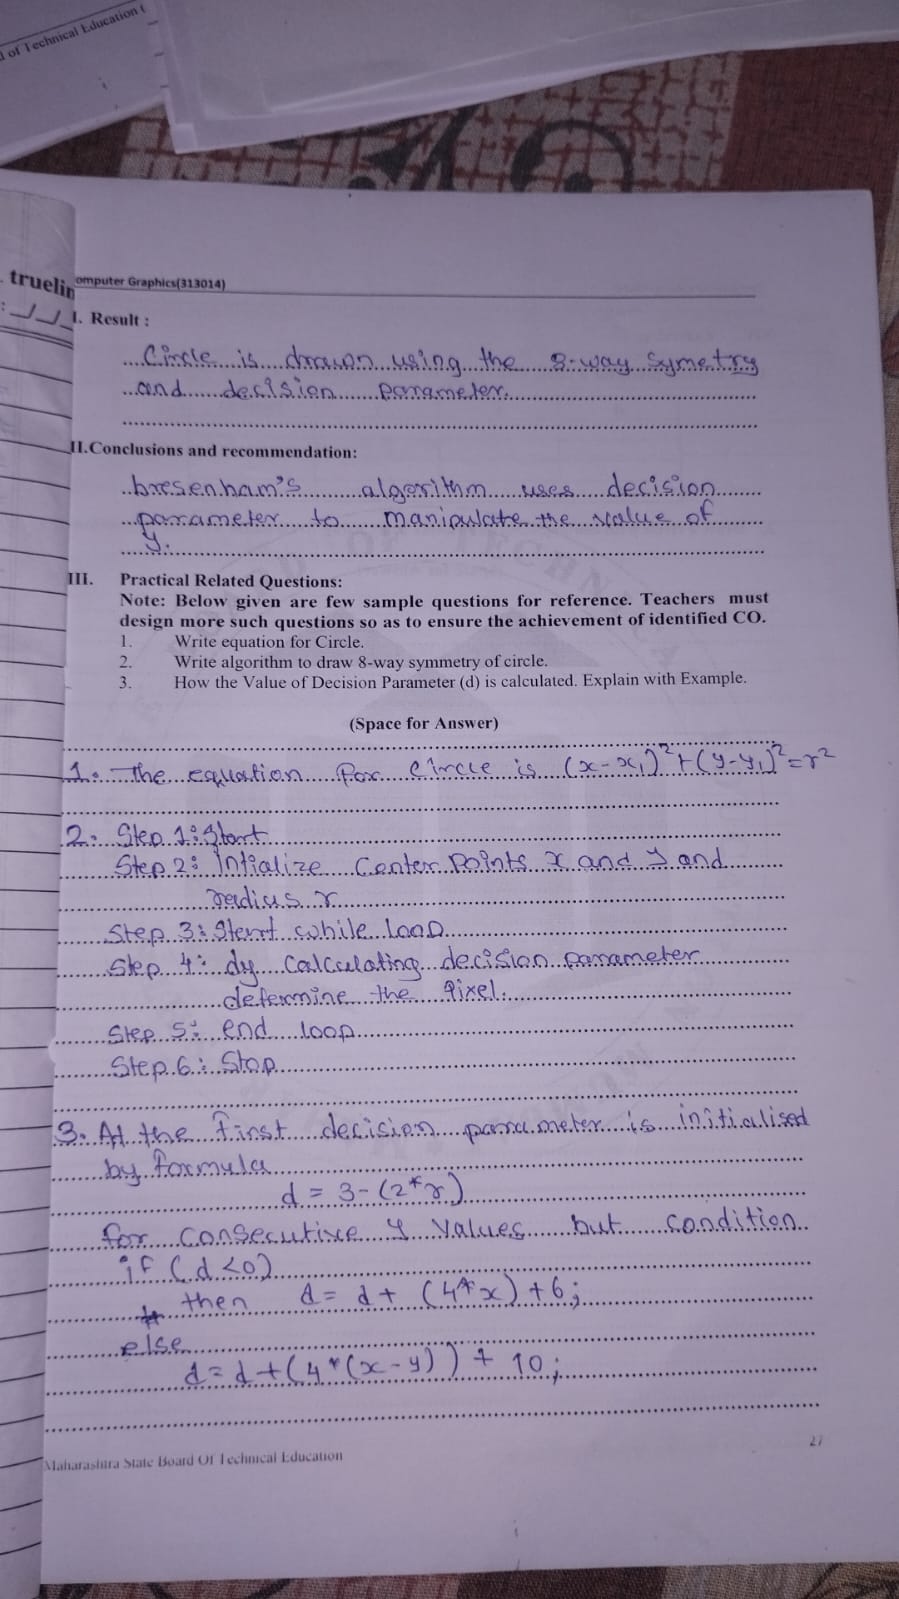 l of Technical Education (
truelin
omputer Graphics(313014)
: _/_/_
I. Result :
Circle is drawn using the 8-way Symetry
and decision parameter.
II.Conclusions and recommendation:
bresenham's algorithm uses decision
parameter to manipulate the value of
y.
III. Practical Related Questions:
Note: Below given are few sample questions for reference. Teachers must
design more such questions so as to ensure the achievement of identified CO.
1. Write equation for Circle.
2. Write algorithm to draw 8-way symmetry of circle.
3. How the Value of Decision Parameter (d) is calculated. Explain with Example.
(Space for Answer)
1. The equation for circle is (x-x₁)²+(y-y₁)²=r²
2. Step 1: Start
Step 2: Intialize Center Points x and y and
radius r
Step 3: Start while loop
Step 4: dy calculating decision parameter
determine the Pixel.
Step 5: end loop
Step 6: Stop
3. At the first decision parameter is initialised
by formula
d = 3-(2*r)
for consecutive y values but condition
if (d<0)
then d= d+ (4*x)+6;
else
d=d+(4*(x-y)) + 10;
27
Maharashtra State Board Of Technical Education